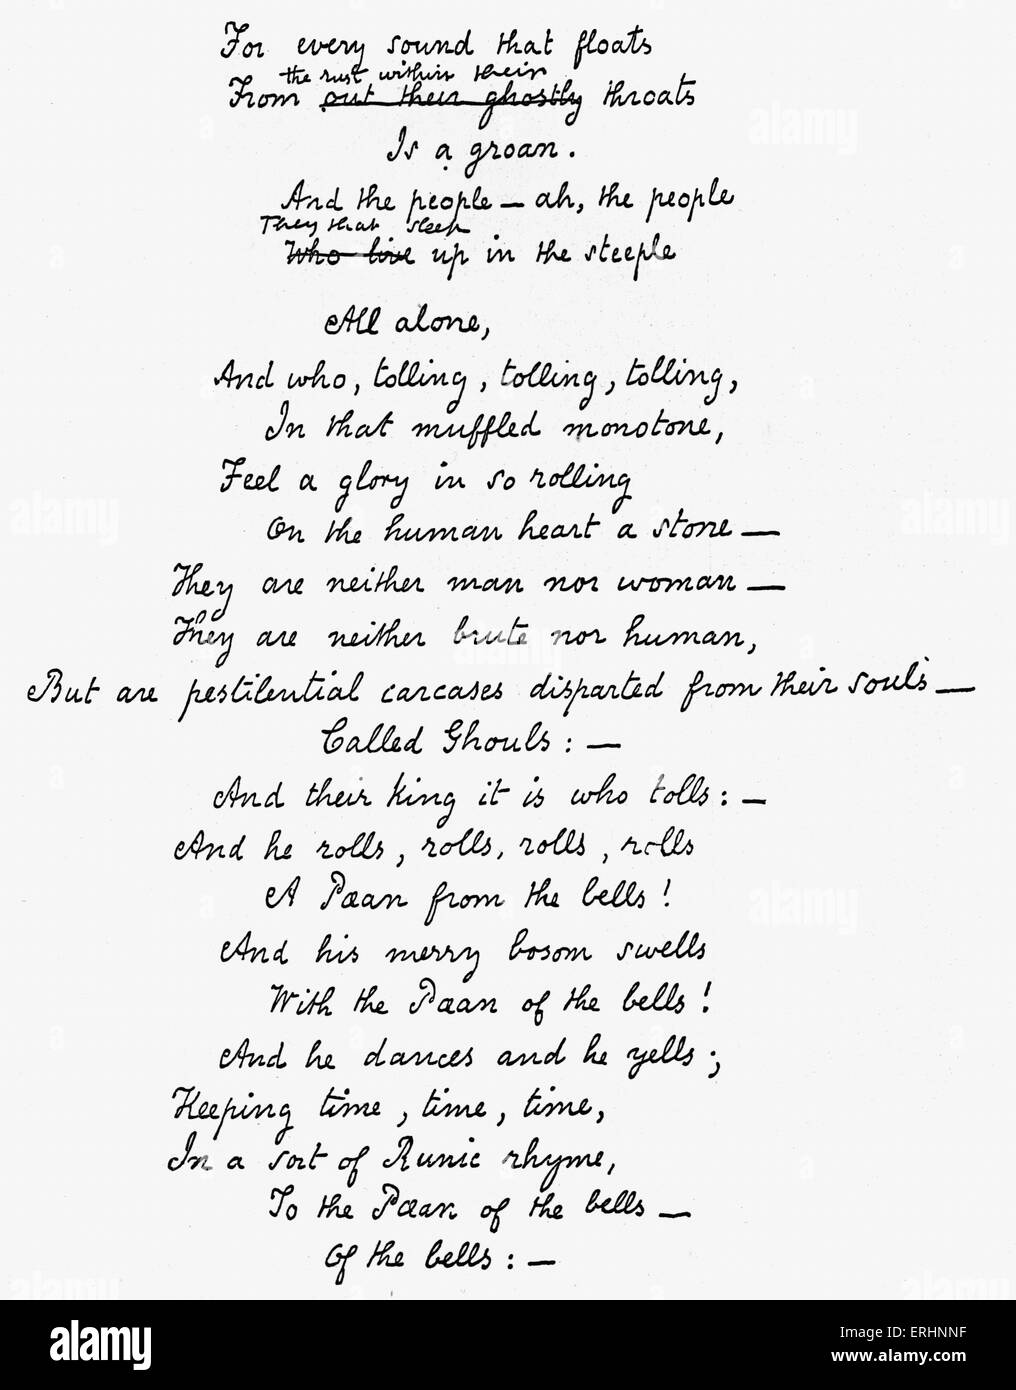 For every sound that floats
the rust within their
From out their ghostly throats
Is a groan.
And the people — ah, the people
They that sleep
Who live up in the steeple
All alone,
And who, tolling, tolling, tolling,
In that muffled monotone,
Feel a glory in so rolling
On the human heart a stone —
They are neither man nor woman —
They are neither brute nor human,
But are pestilential carcases disparted from their souls —
Called Ghouls: —
And their king it is who tolls: —
And he rolls, rolls, rolls, rolls
A Pæan from the bells!
And his merry bosom swells
With the Pæan of the bells!
And he dances and he yells;
Keeping time, time, time,
In a sort of Runic rhyme,
To the Pæan of the bells —
Of the bells: —
alamy
Image ID: ERHNNF
www.alamy.com